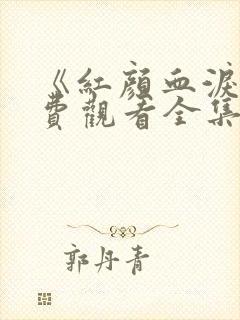 《紅顏血淚
費觀看全集
郭丹青